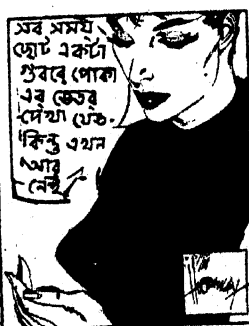 সব সময়
ছোট একটা
গুবরে পোকা
এর ভেতর
দেখা যেত.
কিন্তু এখন
আর
নেই